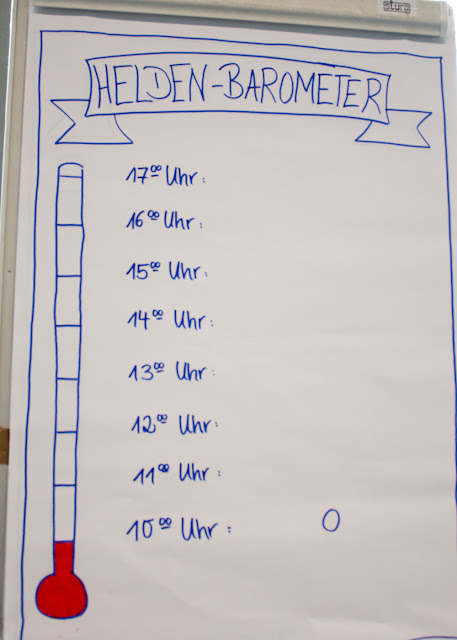 HELDEN-BAROMETER
17⁰⁰ Uhr:
16⁰⁰ Uhr:
15⁰⁰ Uhr:
14⁰⁰ Uhr:
13⁰⁰ Uhr:
12⁰⁰ Uhr:
11⁰⁰ Uhr:
10⁰⁰ Uhr: 0